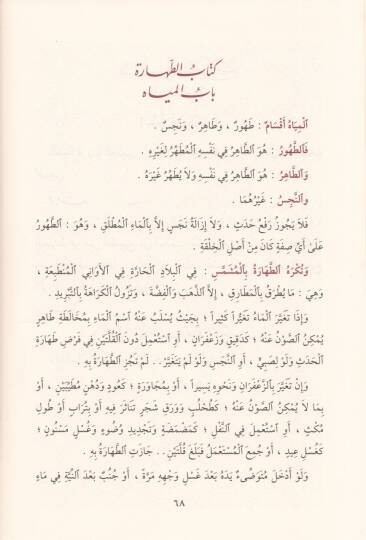 كتاب الطهارة
باب المياه
اَلْمِيَاهُ أَقْسَامٌ : طَهُورٌ ، وَطَاهِرٌ ، وَنَجِسٌ .
فَالطَّهُورُ : هُوَ الطَّاهِرُ فِي نَفْسِهِ الْمُطَهِّرُ لِغَيْرِهِ .
وَالطَّاهِرُ : هُوَ الطَّاهِرُ فِي نَفْسِهِ وَلاَ يُطَهِّرُ غَيْرَهُ .
وَالنَّجِسُ : غَيْرُهُمَا .
فَلاَ يَجُوزُ رَفْعُ حَدَثٍ ، وَلاَ إِزَالَةُ نَجَسٍ إِلاَّ بِالْمَاءِ الْمُطْلَقِ ، وَهُوَ : الطَّهُورُ
عَلَى أَيِّ صِفَةٍ كَانَ مِنْ أَصْلِ الْخِلْقَةِ .
وَتُكْرَهُ الطَّهَارَةُ بِالْمُشَمَّسِ : فِي الْبِلاَدِ الْحَارَّةِ فِي الأَوَانِي الْمُنْطَبِعَةِ ،
وَهِيَ : مَا يُطْرَقُ بِالْمَطَارِقِ ، إِلاَّ الذَّهَبَ وَالْفِضَّةَ ، وَتَزُولُ الْكَرَاهَةُ بِالتَّبْرِيدِ .
وَإِذَا تَغَيَّرَ الْمَاءُ تَغَيُّراً كَثِيراً ؛ بِحَيْثُ يُسْلَبُ عَنْهُ اسْمُ الْمَاءِ بِمُخَالَطَةِ طَاهِرٍ
يُمْكِنُ الصَّوْنُ عَنْهُ ؛ كَدَقِيقٍ وَزَعْفَرَانٍ ، أَوِ اسْتُعْمِلَ دُونَ الْقُلَّتَيْنِ فِي فَرْضِ طَهَارَةِ
الْحَدَثِ وَلَوْ لِصَبِيٍّ ، أَوِ النَّجَسِ وَلَوْ لَمْ يَتَغَيَّرْ.. لَمْ تَجُزِ الطَّهَارَةُ بِهِ .
وَإِنْ تَغَيَّرَ بِالزَّعْفَرَانِ وَنَحْوِهِ يَسِيراً ، أَوْ بِمُجَاوَرَةٍ ؛ كَعُودٍ وَدُهْنٍ مُطَيَّبَيْنِ ، أَوْ
بِمَا لاَ يُمْكِنُ الصَّوْنُ عَنْهُ ؛ كَطُحْلُبٍ وَوَرَقِ شَجَرٍ تَنَاثَرَ فِيهِ أَوْ بِتُرَابٍ أَوْ طُولِ
مُكْثٍ ، أَوِ اسْتُعْمِلَ فِي النَّفْلِ ؛ كَمَضْمَضَةٍ وَتَجْدِيدِ وُضُوءٍ وَغُسْلٍ مَسْنُونٍ ؛
كَغُسْلِ عِيدٍ ، أَوْ جُمِعَ الْمُسْتَعْمَلُ فَبَلَغَ قُلَّتَيْنِ.. جَازَتِ الطَّهَارَةُ بِهِ .
وَلَوْ أَدْخَلَ مُتَوَضِّىءٌ يَدَهُ بَعْدَ غَسْلِ وَجْهِهِ مَرَّةً ، أَوْ جُنُبٌ بَعْدَ النِّيَّةِ فِي مَاءٍ
٦٨